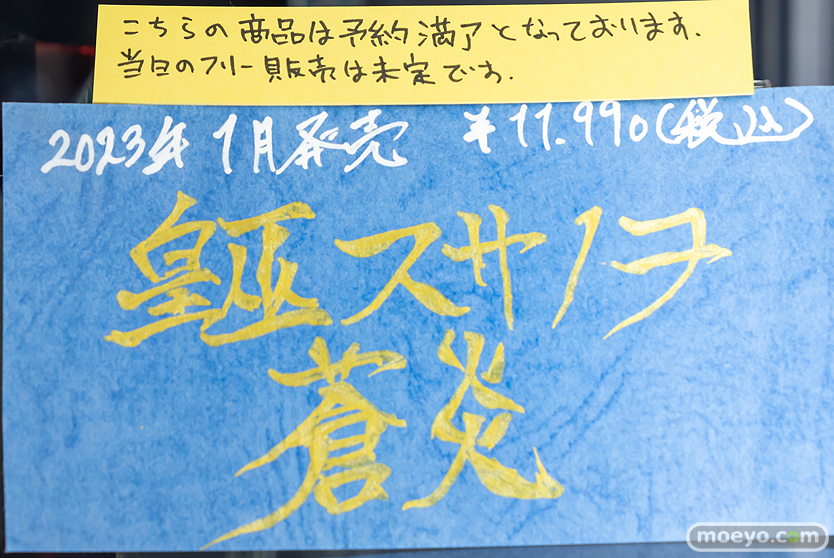 こちらの商品は予約満了となっております.
当日のフリー販売は未定です.
2023年1月発売 ¥11.990(税込)
皇巫スサノヲ
蒼炎
moeyo.com